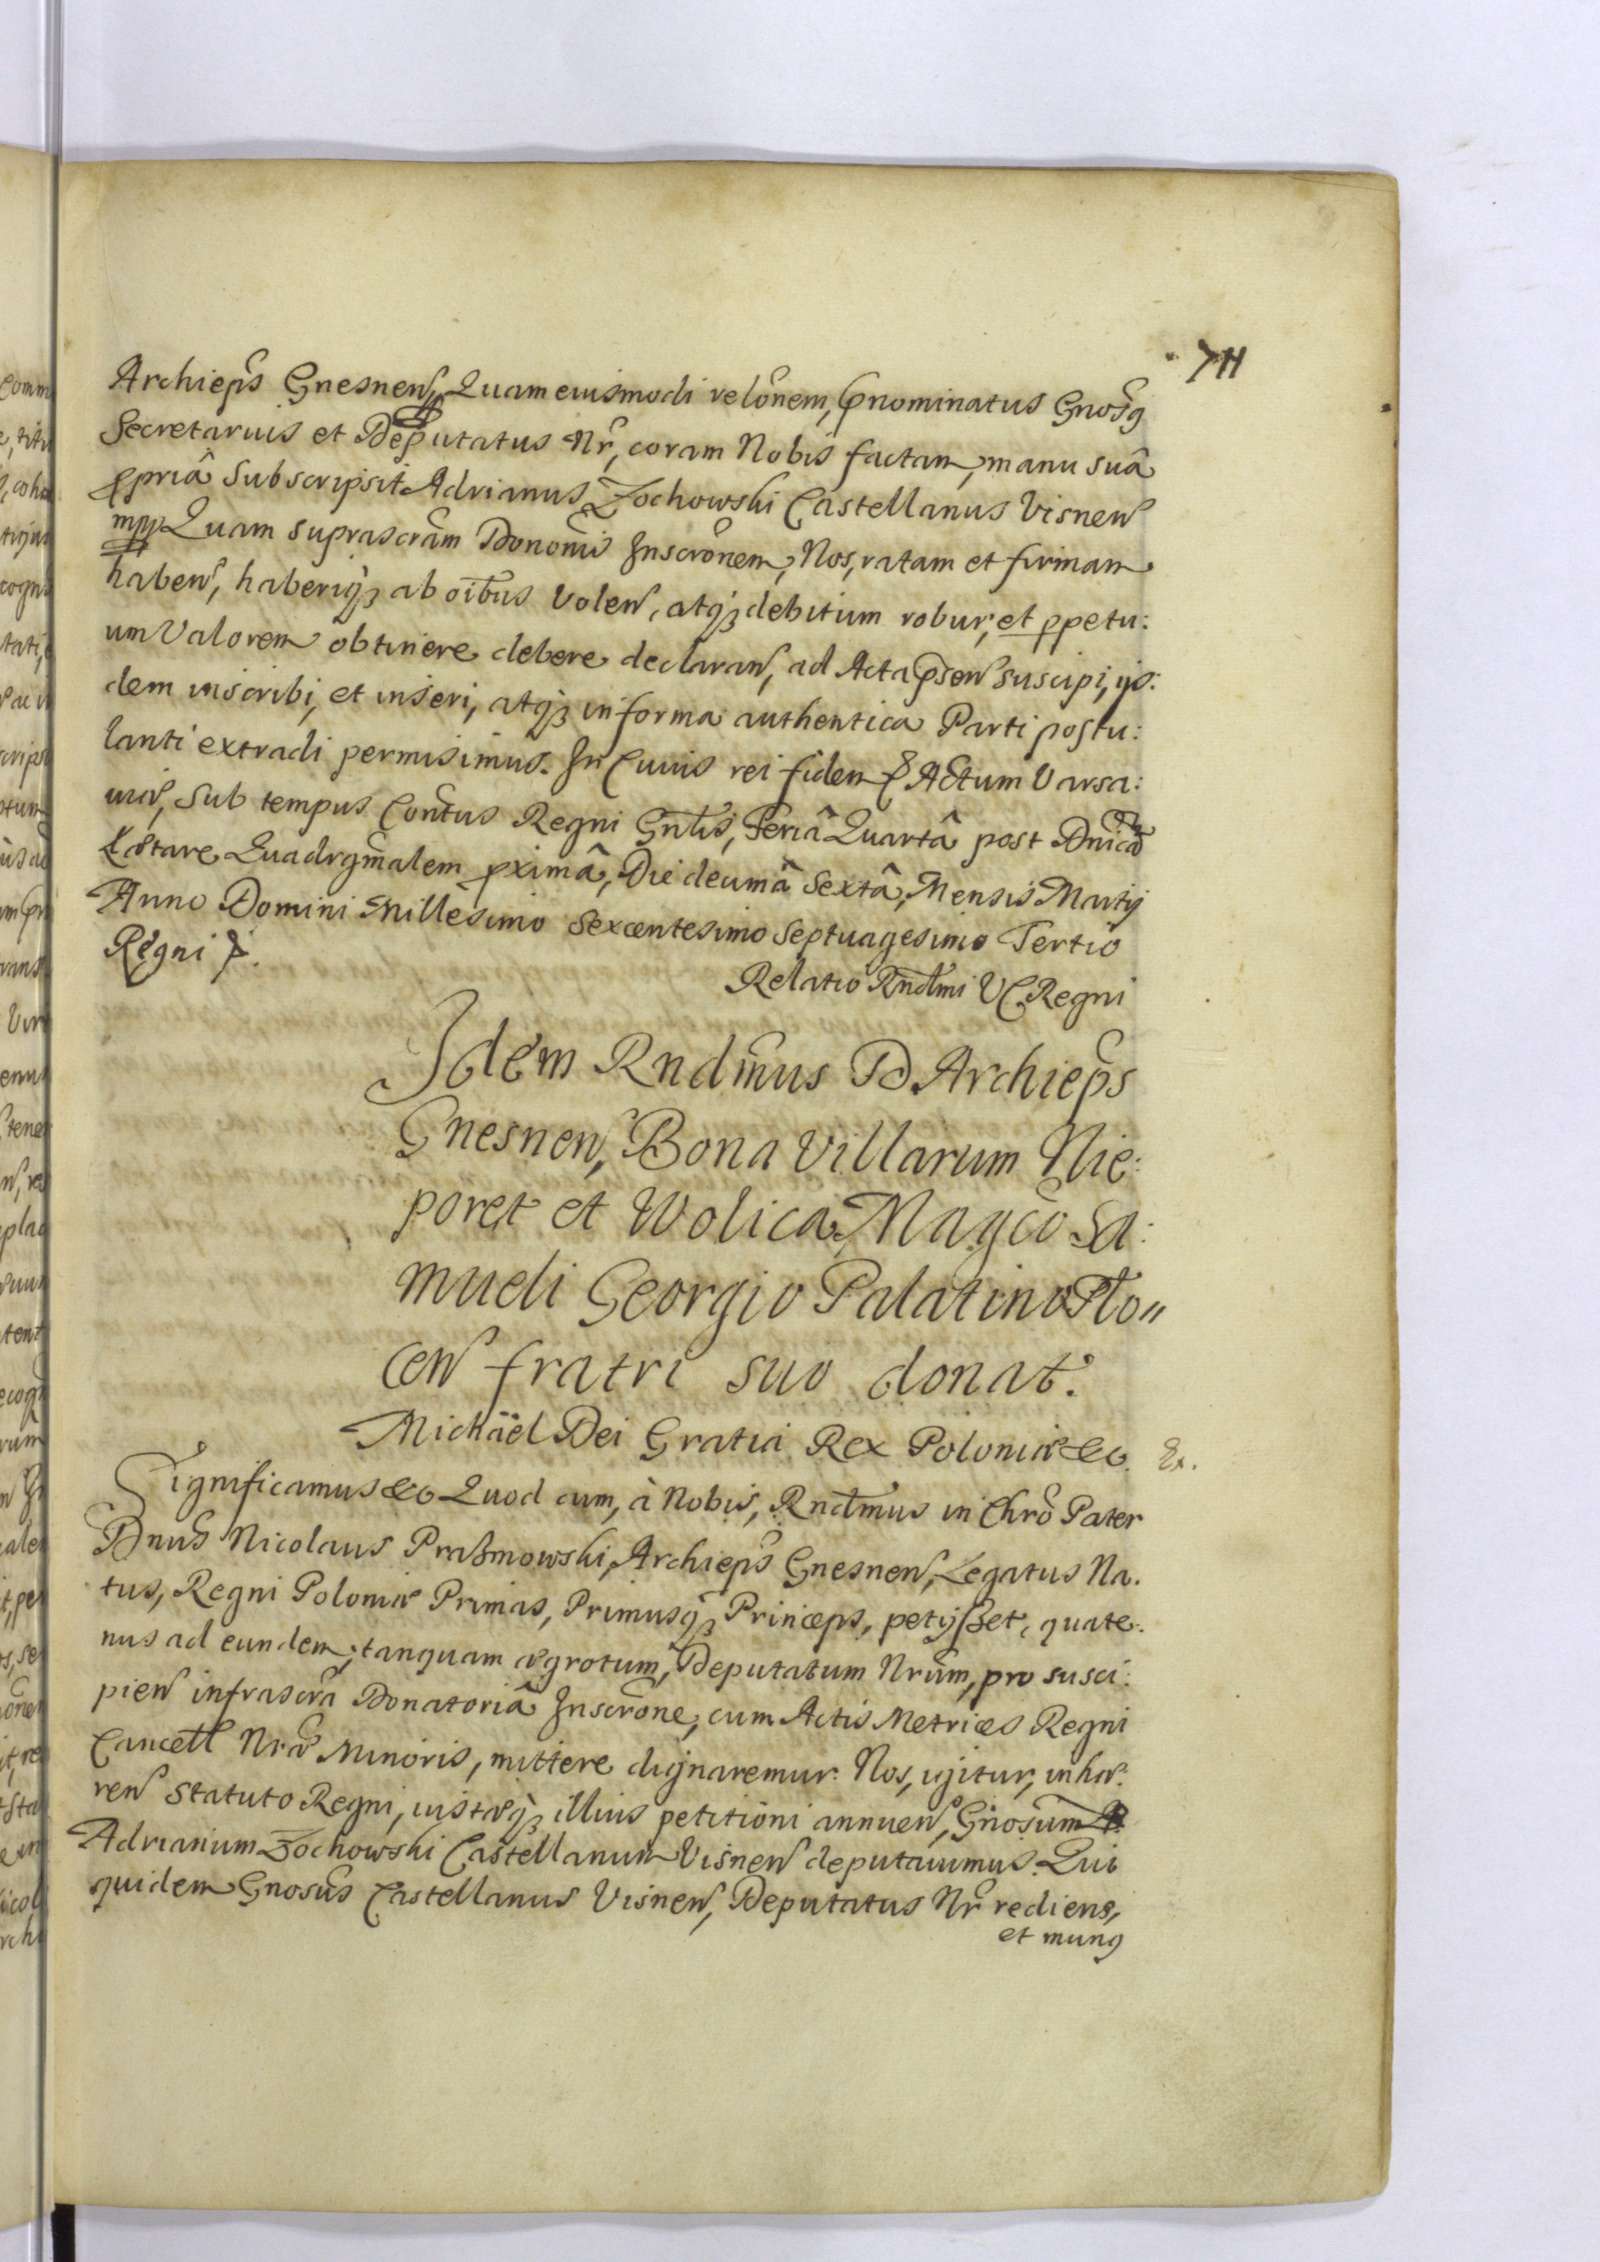 711
Archieps Gnesnen, Quam eiusmodi relonem, pnominatus Gnosq
Secretarius et Deputatus Nr, coram Nobis factam, manu suâ
ppriâ Subscripsit Adrianus Żochowski Castellanus Visnen
mpp Quam suprascram Dononis Inscronem, Nos, ratam et firmam
haben, haberiqȝ ab oibus volen, atqȝ debitum robur, et ppetu:
um Valorem obtinere debere declaran, ad Acta psen suscipi, ijs:
dem inscribi, et inseri, atqȝ in forma authentica Parti postu:
lanti extradi permisimus. In Cuius rei fidem p Actum Varsa:
uiæ, Sub tempus Contus Regni Gnlis, Feriâ Quartâ post Dnicam
Lætare Quadrgmalem pximâ, Die decimâ Sextâ, Mensis Martij
Anno Domini Millesimo Sexcentesimo Septuagesimo Tertio
Regni p.
Relatio Rndmi VC Regni
Idem Rndmus D Archieps
Gnesnen, Bona Villarum Nie:
poret et Wolica, Magco Sa:
mueli Georgio Palatino Plo"
cen fratri suo donat.
Michäel Dei Gratia Rex Poloniæ &c. Ex.
Significamus &c Quod cum, à Nobis, Rndmus in Chro Pater
Dnus Nicolaus Prażmowski, Archieps Gnesnen, Legatus Na.
tus, Regni Poloniæ Primas, Primusqȝ Princeps, petijßet, quate:
nus ad eundem, tanquam ægrotum, Deputatum Nrum, pro susci:
pien infrascra Donatoriâ Inscrone, cum Actis Metrices Regni
Cancell Nræ Minoris, mittere dignaremur. Nos, igitur, inhæ:
ren Statuto Regni, iustæqȝ illius petitioni annuen, Gnosum
Adrianum Żochowski Castellanum Visnen deputauimus. Qui
quidem Gnosus Castellanus Visnen, Deputatus Nr rediens,
et munq